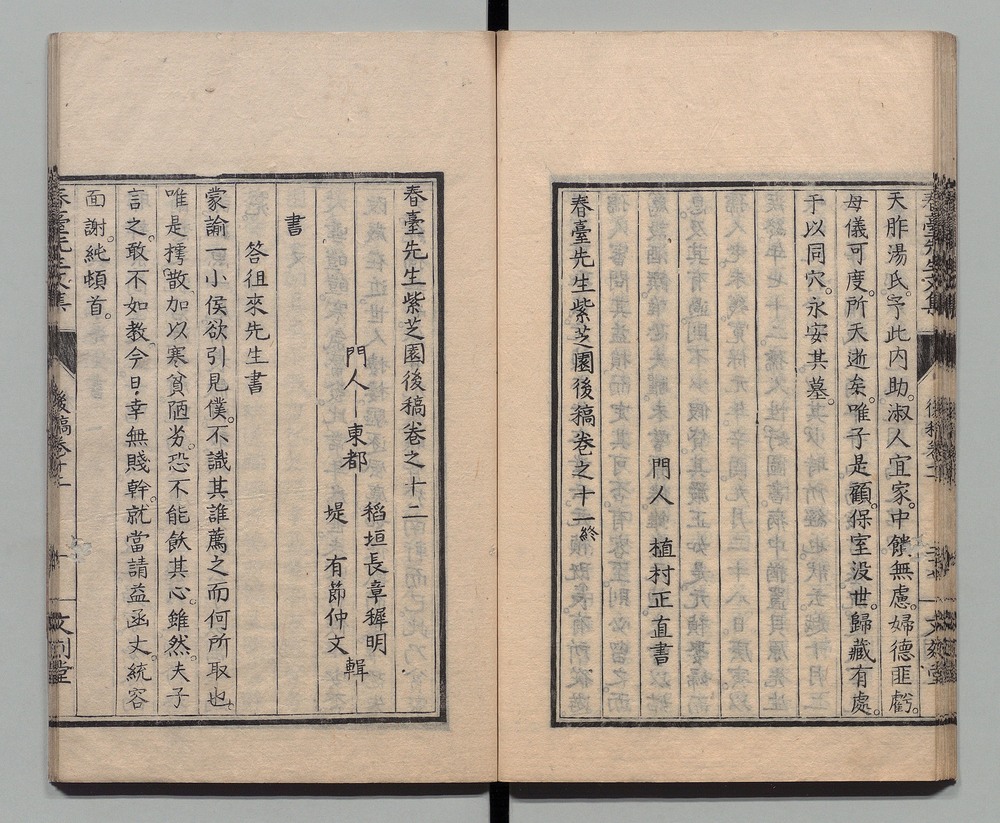 天胙湯氏。予此内助。淑人宜家。中饋無慮。婦德匪虧。
母儀可度。所天逝矣。唯子是顧。保室没世。歸藏有處。
于以同穴。永安其墓。
門人 植村正直書
春臺先生紫芝園後稿卷之十一終
春臺先生紫芝園後稿卷之十二
門人 東都 稻垣長章穉明
堤 有節仲文 輯
書
答徂來先生書
蒙諭一二小侯欲引見僕。不識其誰薦之而何所取也。
唯是樗散加以寒貧陋劣。恐不能飫其心。雖然。夫子
言之。敢不如教。今日幸無賤幹。就當請益函丈。統容
面謝。純頓首。
春臺先生文集
後稿卷十二
一
文刻堂